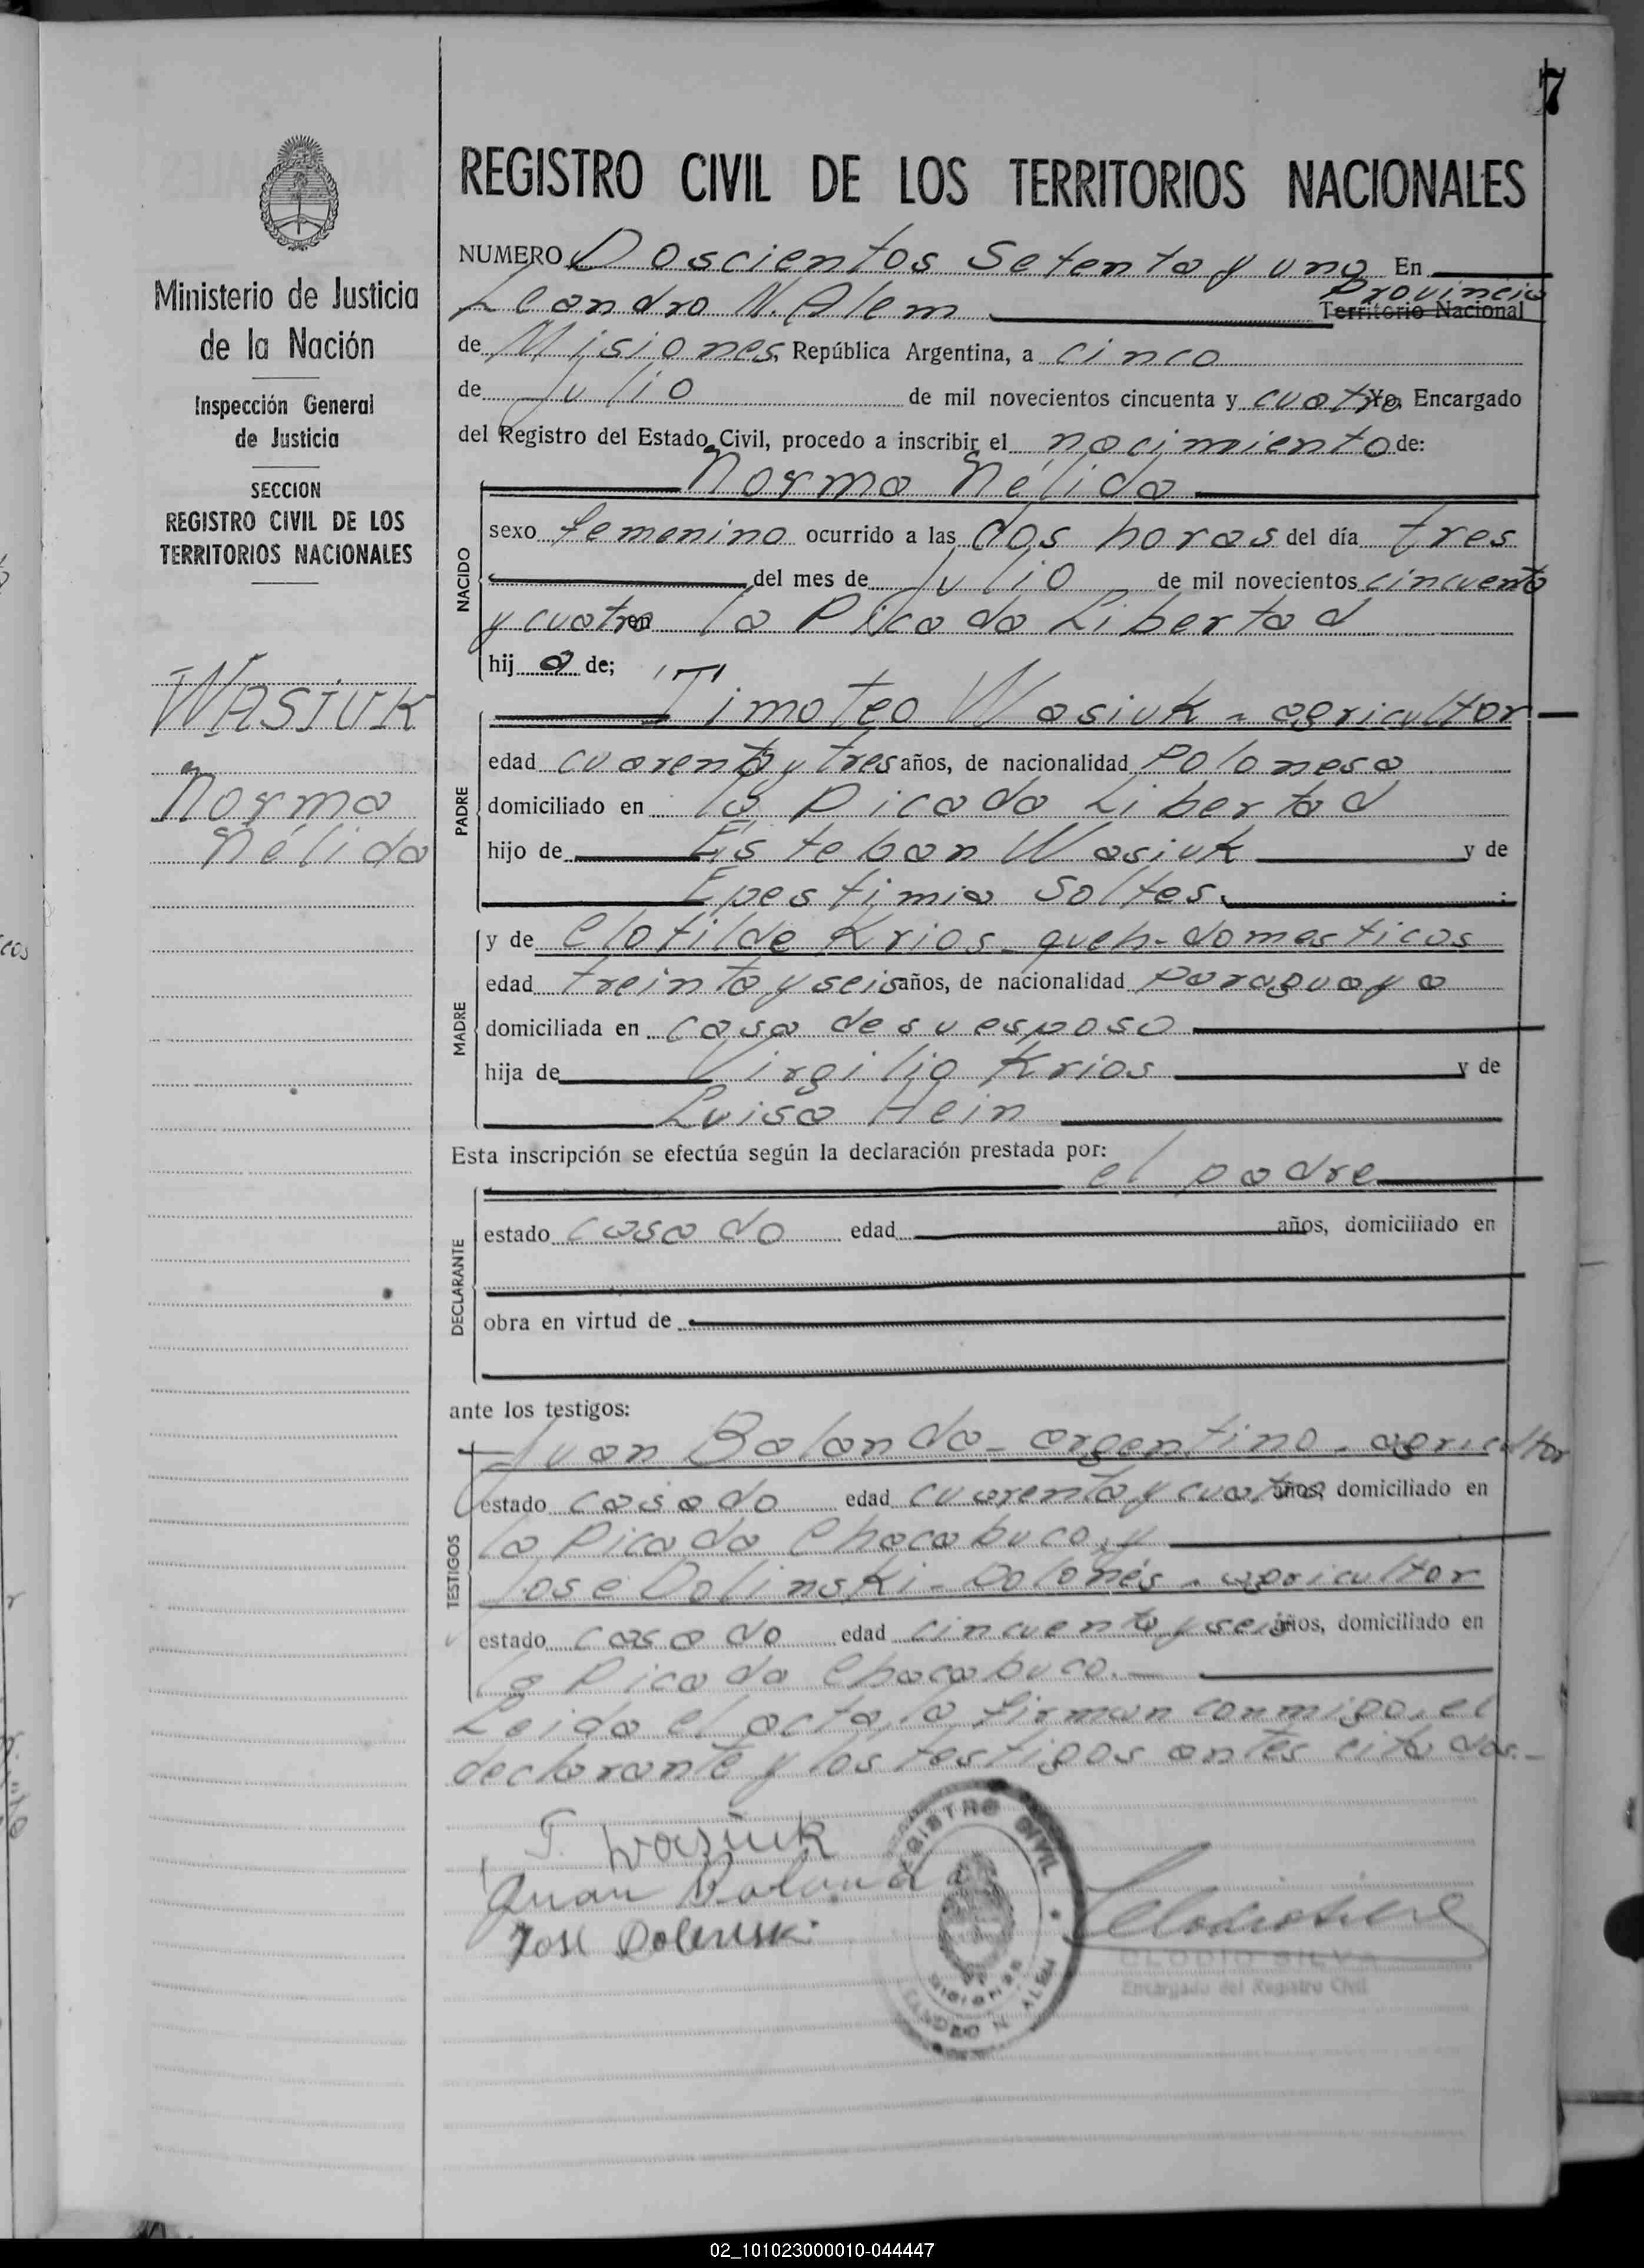 7
REGISTRO CIVIL DE LOS TERRITORIOS NACIONALES
Ministerio de Justicia
de la Nación
Inspección General
de Justicia
SECCION
REGISTRO CIVIL DE LOS
TERRITORIOS NACIONALES
WASIUK
Norma
Nélida
NUMERO Doscientos Setenta y uno En
Leandro N. Alem Provincia Territorio Nacional
de Misiones, República Argentina, a cinco
de Julio de mil novecientos cincuenta y cuatro Yo, Encargado
del Registro del Estado Civil, procedo a inscribir el nacimiento de:
Norma Nélida
NACIDO
sexo femenino ocurrido a las dos horas del día tres
del mes de Julio de mil novecientos cincuenta
y cuatro en la Picada Libertad
hij a de;
Timoteo Wasiuk - agricultor
PADRE
edad cuarenta y tres años, de nacionalidad Polonesa
domiciliado en la Picada Libertad
hijo de Esteban Wasiuk y de
Epestimia Soltes.
MADRE
y de Clotilde Krias - queh-domesticos
edad treinta y seis años, de nacionalidad paraguaya
domiciliada en casa de su esposo
hija de Virgilio Krias y de
Luisa Hein
Esta inscripción se efectúa según la declaración prestada por:
el padre
DECLARANTE
estado casado edad años, domiciliado en
obra en virtud de
ante los testigos:
TESTIGOS
Juan Balanda - argentino - agricultor
estado casado edad cuarenta y cuatro años, domiciliado en
la Picada Chacabuco, y
José Dolinski - Polonés - agricultor
estado casado edad cincuenta y seis años, domiciliado en
la Picada Chacabuco.
Leida el acta, la firman conmigo, el
declarante y los testigos antes citados.-
T. Wasiuk
Juan Balanda
José Dolinski
REGISTRO CIVIL
Misiones
LEANDRO N. ALEM
CLODIO SILVA
Encargado del Registro Civil
02_101023000010-044447